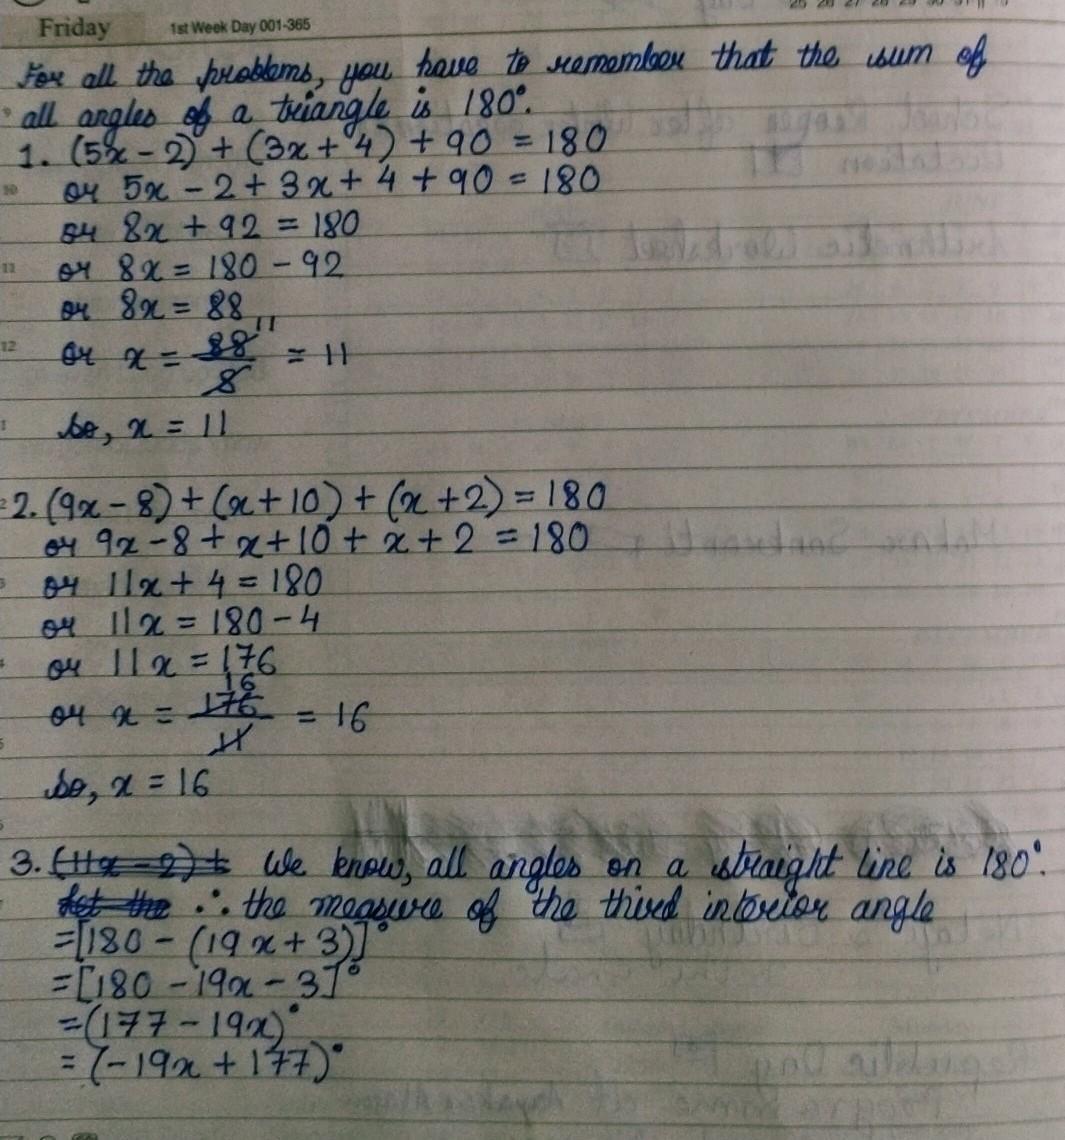 Friday 1st Week Day 001-365
For all the problems, you have to remember that the sum of
all angles of a triangle is 180°.
1. (5x - 2) + (3x + 4) + 90 = 180
or 5x - 2 + 3x + 4 + 90 = 180
or 8x + 92 = 180
or 8x = 180 - 92
or 8x = 88
or x = 88/8 11 = 11
so, x = 11
2. (9x - 8) + (x + 10) + (x + 2) = 180
or 9x - 8 + x + 10 + x + 2 = 180
or 11x + 4 = 180
or 11x = 180 - 4
or 11x = 176
or x = 176/11 16 = 16
so, x = 16
3. (11x - 2) + We know, all angles on a straight line is 180°.
Let the ∴ the measure of the third interior angle
= [180 - (19x + 3)]°
= [180 - 19x - 3]°
= (177 - 19x)°
= (-19x + 177)°